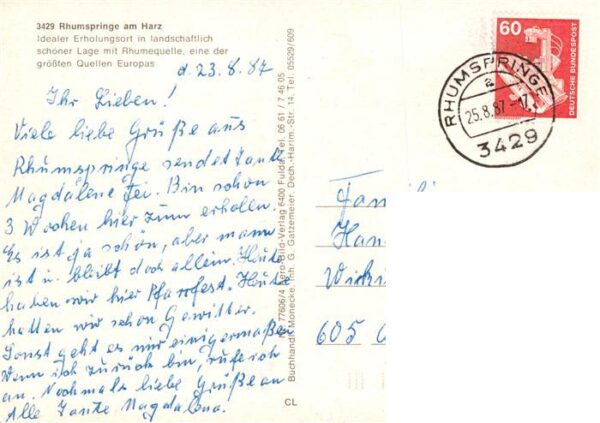 3429 Rhumspringe am Harz
Idealer Erholungsort in landschaftlich
schöner Lage mit Rhumequelle, eine der
größten Quellen Europas
d. 23.8.87
Ihr Lieben!
Viele liebe Grüße aus
Rhumspringe sendet Tante
Magdalene Fei. Bin schon
3 Wochen hier zum erholen.
Es ist ja schön, aber mann
ist u. bleibt doch allein. Heute
haben wir hier Pfarrfest. Heute
hatten wir schon Gewitter.
Sonst geht es mir einigermaßen
Wenn ich zurück bin, rufe ich
an. Nochmals liebe Grüße an
Alle Tante Magdalena.
77606/4 Verlag 6400 Fulda, Tel. 06 61 / 7 46 05
Buchhandl. Monecke, Inh. G. Gatzemeier, Dech.-Hartm.-Str. 14, Tel. 05529/609
CL
60
DEUTSCHE BUNDESPOST
RHUMSPRINGE
a
25.8.87-17
3429
Fam
Han
605